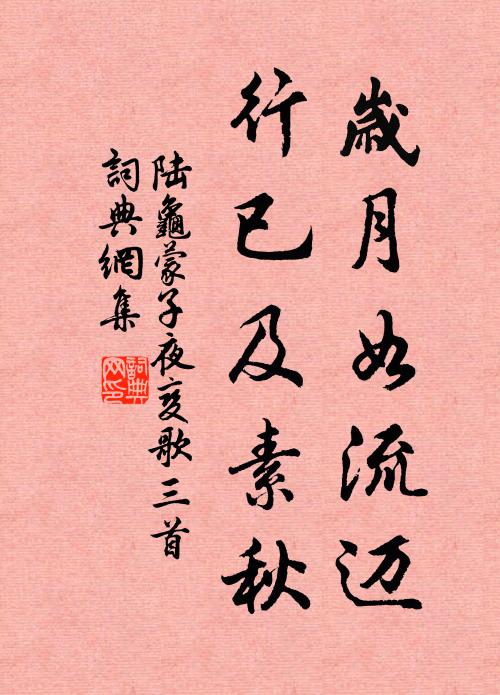 歲月如流迈
行已及素秋
陆龜蒙子夜变歌三首
詞典網集
詞典网印